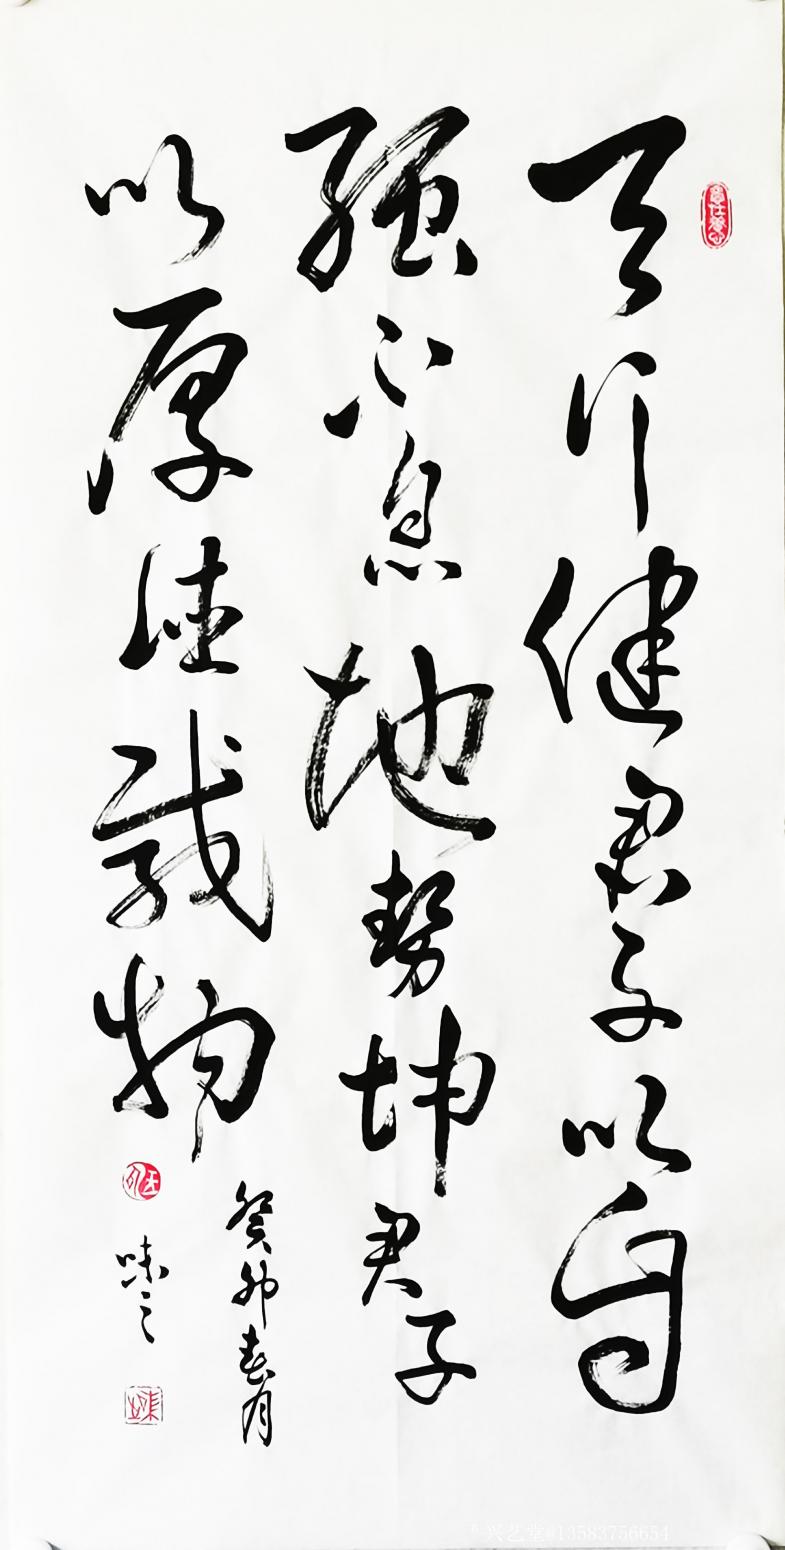 天行健君子以自
强不息地势坤君子
以厚德载物
癸卯春月
味之
兴艺堂#13583756654